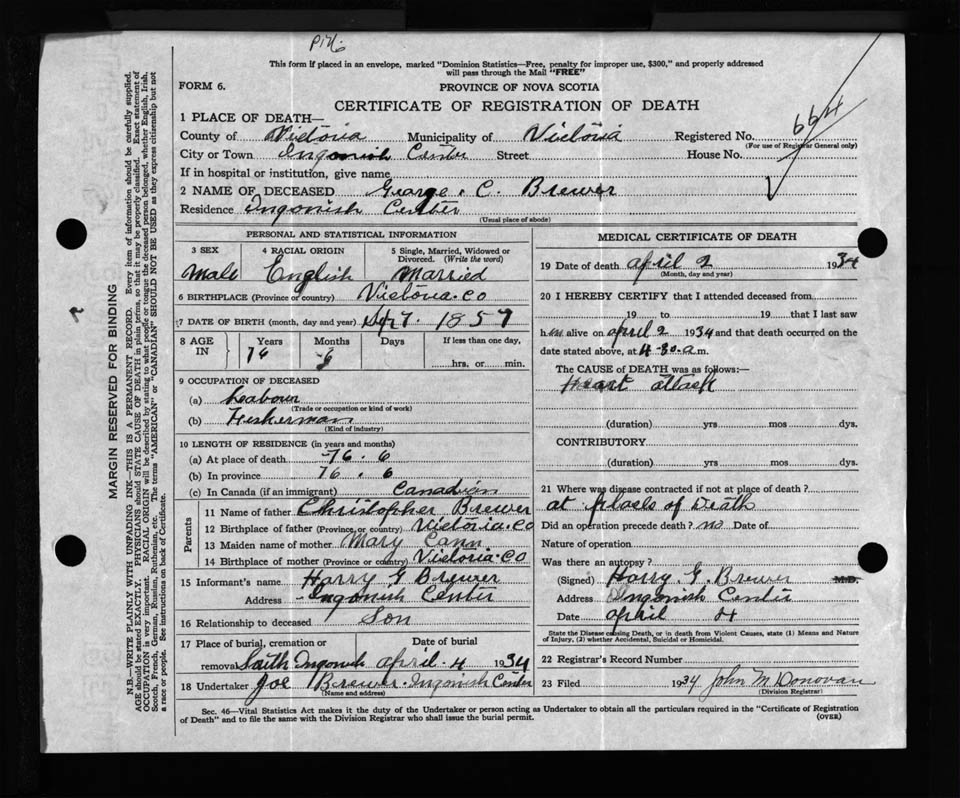 This form if placed in an envelope, marked "Dominion Statistics—Free, penalty for improper use, $300," and properly addressed
will pass through the Mail "FREE"
FORM 6.
PROVINCE OF NOVA SCOTIA
CERTIFICATE OF REGISTRATION OF DEATH
664
1 PLACE OF DEATH—
County of Victoria Municipality of Victoria Registered No.
(For use of Registrar General only)
City or Town Ingonish Center Street House No.
If in hospital or institution, give name
2 NAME OF DECEASED George . C. Brewer
Residence Ingonish Center
(Usual place of abode)
PERSONAL AND STATISTICAL INFORMATION
3 SEX 4 RACIAL ORIGIN 5 Single, Married, Widowed or
Divorced. (Write the word)
Male English Married
6 BIRTHPLACE (Province or country) Victoria . Co
7 DATE OF BIRTH (month, day and year) 7. 1857
8 AGE IN Years Months Days If less than one day,
76 6 hrs. or min.
9 OCCUPATION OF DECEASED
(a) Labour
(Trade or occupation or kind of work)
(b) Fisherman
(Kind of industry)
10 LENGTH OF RESIDENCE (in years and months)
(a) At place of death 76 . 6
(b) In province 76 . 6
(c) In Canada (if an immigrant) Canadian
Parents
11 Name of father Christopher Brewer
12 Birthplace of father (Province or country) Victoria . Co
13 Maiden name of mother Mary Cann
14 Birthplace of mother (Province or country) Victoria . Co
15 Informant's name Harry G Brewer
Address Ingonish Center
16 Relationship to deceased Son
17 Place of burial, cremation or Date of burial
removal South Ingonish April . 4 1934
18 Undertaker Joe Brewer . Ingonish Center
(Name and address)
MEDICAL CERTIFICATE OF DEATH
19 Date of death April 2 1934
(Month, day and year)
20 I HEREBY CERTIFY that I attended deceased from
19 to 19 that I last saw
h alive on April 2 1934 and that death occurred on the
date stated above, at 4-30 a m.
The CAUSE of DEATH was as follows:—
Heart attack
(duration) yrs mos dys.
CONTRIBUTORY
(duration) yrs mos dys.
21 Where was disease contracted if not at place of death?
at of Death
Did an operation precede death? no Date of
Nature of operation
Was there an autopsy?
(Signed) Harry . G . Brewer M.D.
Address Ingonish Center
Date April 4
State the Disease causing Death, or in death from Violent Causes, state (1) Means and Nature
of Injury, (2) whether Accidental, Suicidal or Homicidal.
22 Registrar's Record Number
23 Filed 1934 John M Donovan
(Division Registrar)
Sec. 46—Vital Statistics Act makes it the duty of the Undertaker or person acting as Undertaker to obtain all the particulars required in the "Certificate of Registration
of Death" and to file the same with the Division Registrar who shall issue the burial permit.
(OVER)
MARGIN RESERVED FOR BINDING
N.B.—WRITE PLAINLY WITH UNFADING INK—THIS IS A PERMANENT RECORD. Every item of information should be carefully supplied.
AGE should be stated EXACTLY. PHYSICIANS should STATE CAUSE OF DEATH in plain terms, so that it may be properly classified. Exact statement of
OCCUPATION is very important. RACIAL ORIGIN will be described by stating to what people or tongue the deceased person belonged, whether English, Irish,
Scotch, French, German, Russian, Ruthenian, etc. The terms "AMERICAN" or "CANADIAN" SHOULD NOT BE USED as they express citizenship but not
a race or people. See instructions on back of Certificate.